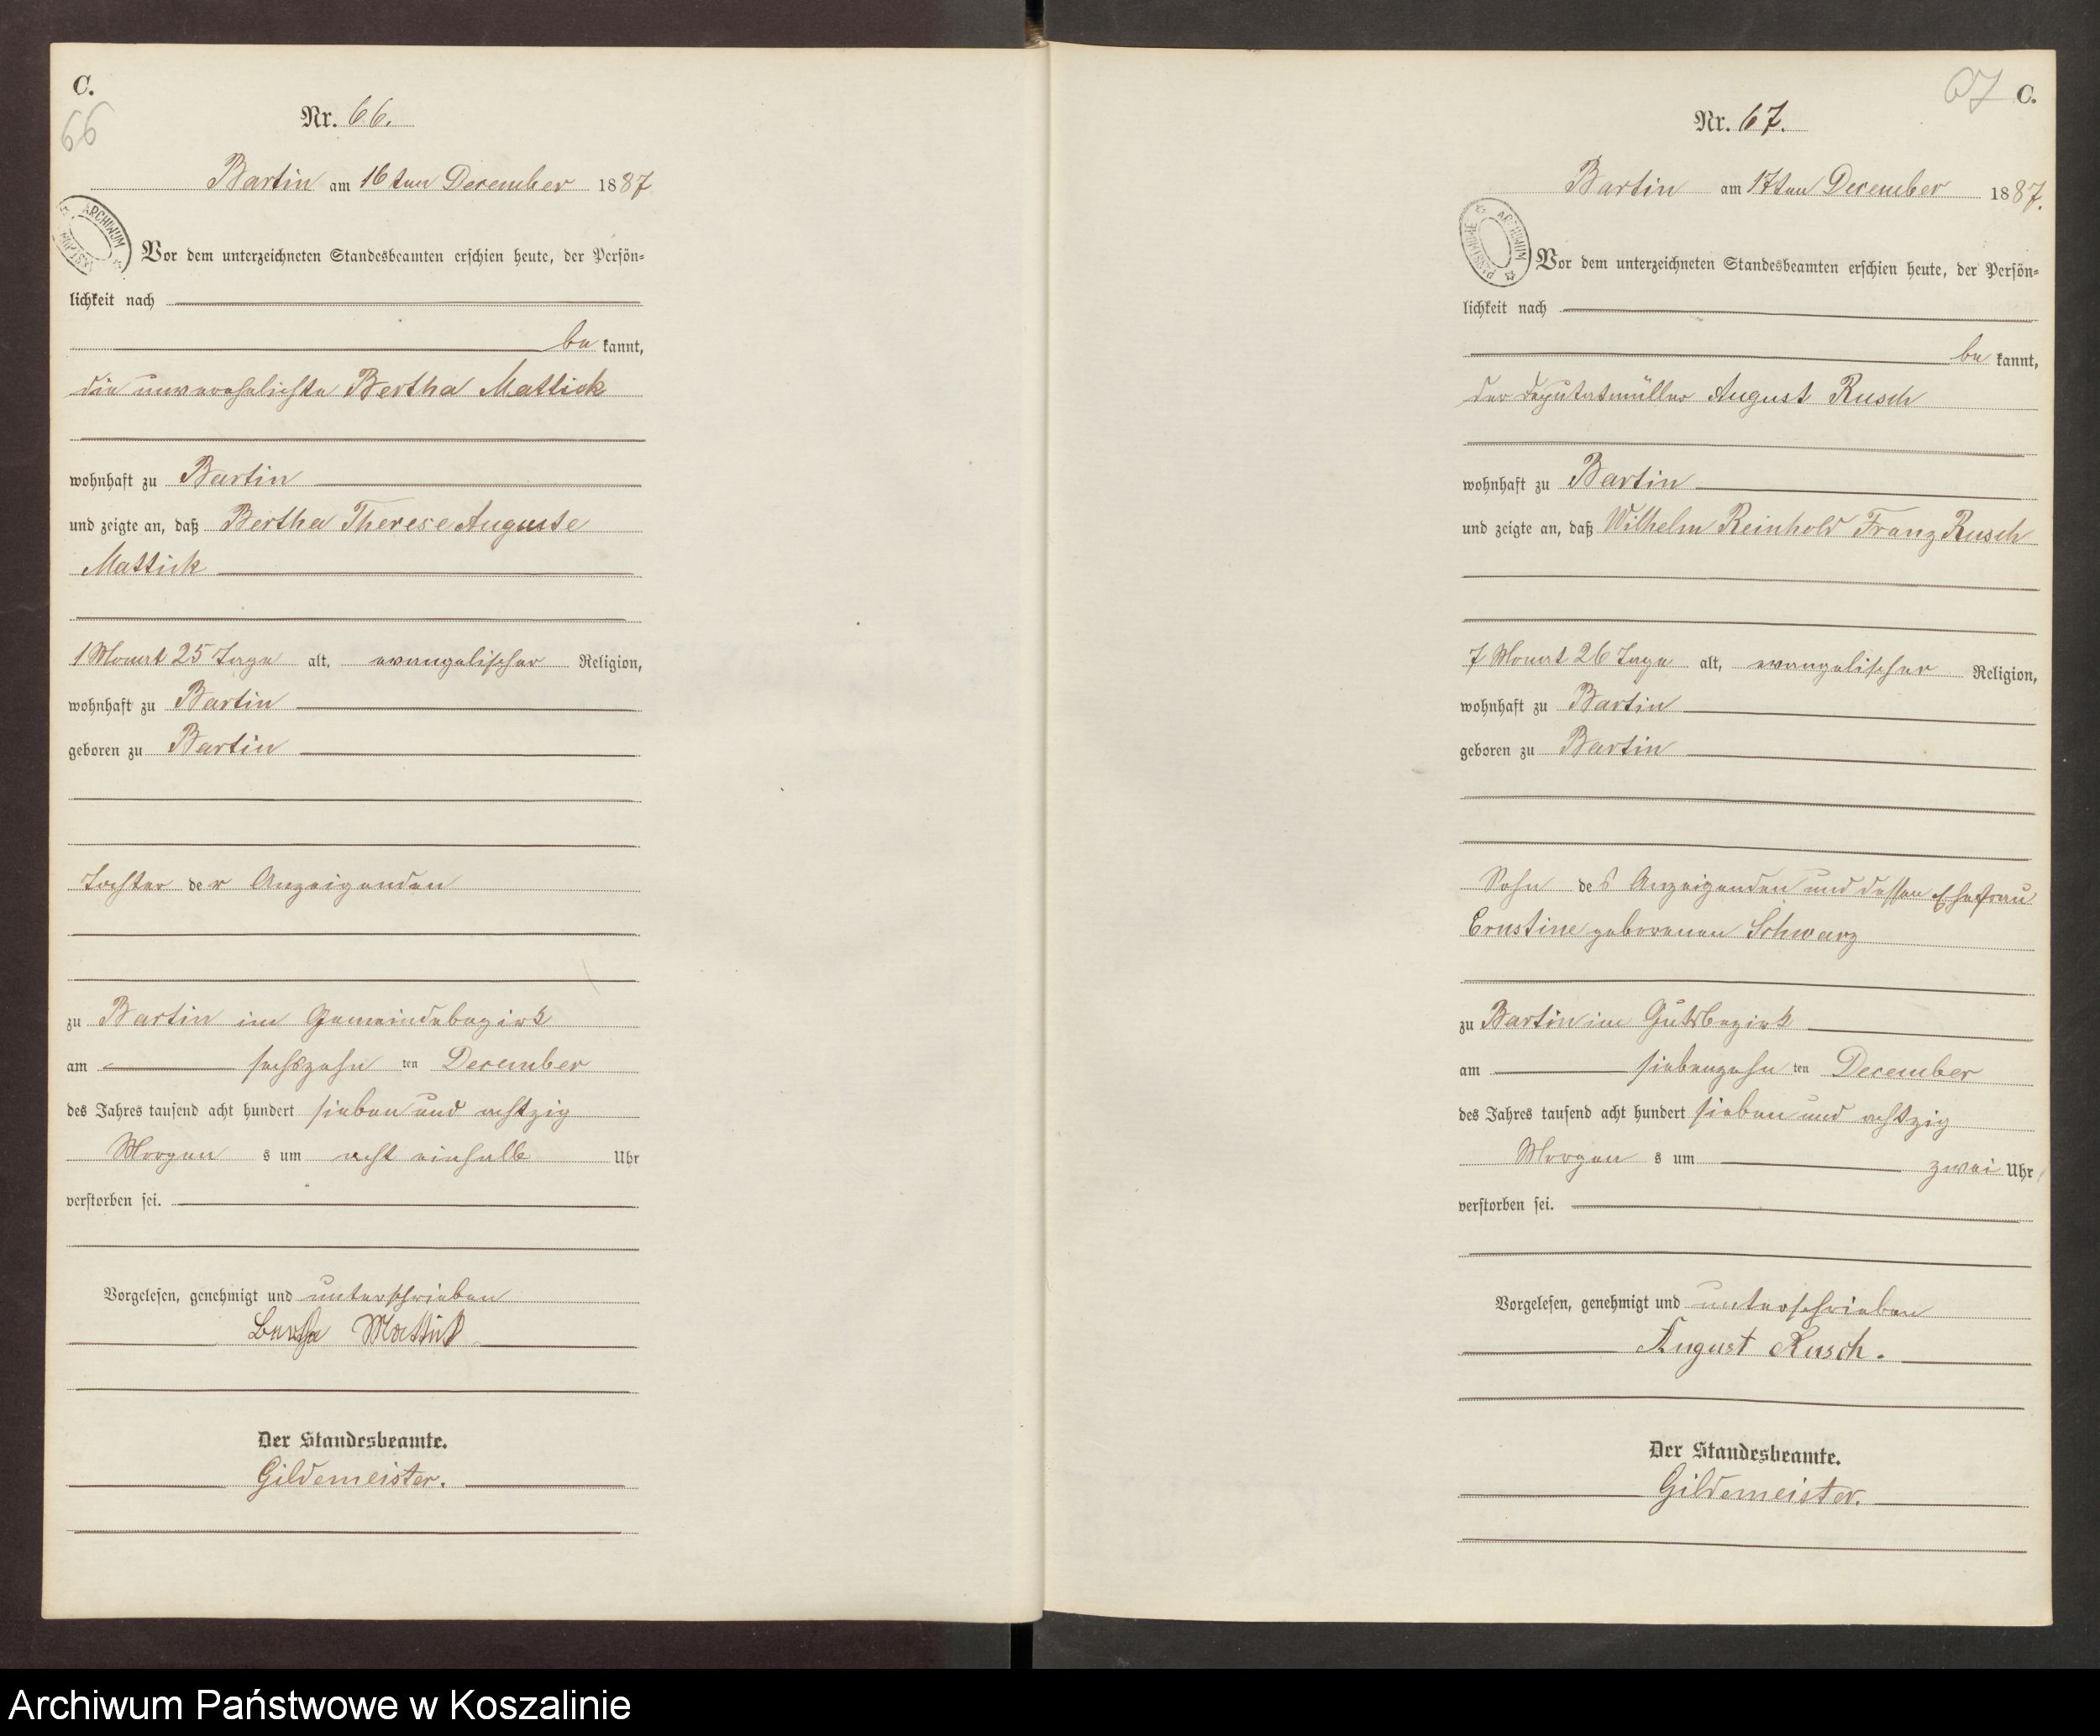 C.
66
Nr. 66.
Bartin am 16ten December 1887
ARCHIWUM
Vor dem unterzeichneten Standesbeamten erschien heute, der Persön-
lichkeit nach
be kannt,
die unverehelichte Bertha Mattick
wohnhaft zu Bartin
und zeigte an, daß Bertha Therese Auguste
Mattick
1 Monat 25 Tage alt, evangelischer Religion,
wohnhaft zu Bartin
geboren zu Bartin
Tochter der Anzeigenden
zu Bartin im Gemeindebezirk
am sechszehn ten December
des Jahres tausend acht hundert sieben und achtzig
Morgen s um acht einhalb Uhr
verstorben sei.
Vorgelesen, genehmigt und unterschrieben
Bertha Mattick
Der Standesbeamte.
Gildemeister.
67 C.
Nr. 67.
Bartin am 17ten December 1887.
ARCHIWUM
Vor dem unterzeichneten Standesbeamten erschien heute, der Persön-
lichkeit nach
be kannt,
der Deputatmüller August Rusch
wohnhaft zu Bartin
und zeigte an, daß Wilhelm Reinhold Franz Rusch
7 Monat 26 Tage alt, evangelischer Religion,
wohnhaft zu Bartin
geboren zu Bartin
Sohn des Anzeigenden und dessen Ehefrau
Ernstine geborenen Schwarz
zu Bartin im Gutsbezirk
am siebenzehn ten December
des Jahres tausend acht hundert sieben und achtzig
Morgen s um zwei Uhr
verstorben sei.
Vorgelesen, genehmigt und unterschrieben
August Rusch.
Der Standesbeamte.
Gildemeister.
Archiwum Państwowe w Koszalinie